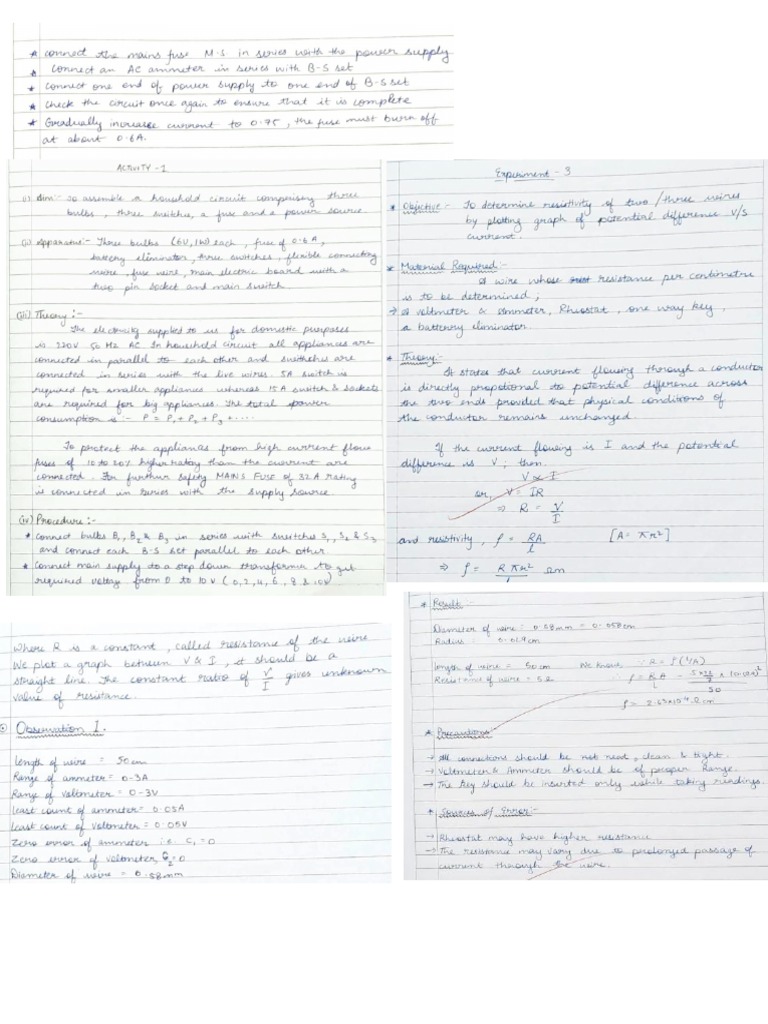 * Connect the mains fuse M.S. in series with the power supply
* Connect an AC ammeter in series with B-S set
* Connect one end of power supply to one end of B-S set
* Check the circuit once again to ensure that it is complete
* Gradually increase current to 0.75, the fuse must burn off
at about 0.6A.
ACTIVITY-1
(i) Aim:- To assemble a household circuit comprising three
bulbs, three switches, a fuse and a power source
(ii) Apparatus:- Three bulbs (6V, 1W) each, fuse of 0.6 A,
battery eliminator, three switches, flexible connecting
wire, fuse wire, main electric board with a
two pin socket and main switch
(iii) Theory:-
The electricity supplied to us for domestic purposes
is 220V 50 Hz AC. In household circuit all appliances are
connected in parallel to each other and switches are
connected in series with the live wires. 5A switch is
required for smaller appliances whereas 15A switch & sockets
are required for big appliances. The total power
consumption is :- P = P1 + P2 + P3 + ....
To protect the appliances from high current flow
fuses of 10 to 20% higher rating than the current are
connected. For further safety MAINS FUSE of 32 A rating
is connected in series with the supply source
(iv) Procedure:-
* Connect bulbs B1, B2 & B3 in series with switches S1, S2 & S3
and connect each B-S set parallel to each other.
* Connect main supply to a step down transformer to get
required voltage from 0 to 10 V (0, 2, 4, 6, 8 & 10V)
Experiment - 3
* Objective:- To determine resistivity of two/three wires
by plotting graph of potential difference V/S
current.
* Material Required:-
A wire whose resistance per centimetre
is to be determined;
→ a voltmeter & ammeter, Rheostat, one way key,
a battery eliminator.
* Theory:-
It states that current flowing through a conductor
is directly propotional to potential difference across
the two ends provided that physical conditions of
the conductor remains unchanged.
If the current flowing is I and the potential
difference is V; then
V ∝ I
or, V = IR
⇒ R = V/I
and resistivity, ρ = RA/l [A = πr²]
⇒ ρ = Rπr²/l Ωm
Where R is a constant, called resistance of the wire
We plot a graph between V & I, it should be a
straight line. The constant ratio of V/I gives unknown
value of resistance.
Observation 1.
Length of wire = 50cm
Range of ammeter = 0-3A
Range of voltmeter = 0-3V
Least count of ammeter = 0.05A
Least count of voltmeter = 0.05V
Zero error of ammeter i.e. C1 = 0
Zero error of voltmeter, C2 = 0
Diameter of wire = 0.58mm
* Result:-
Diameter of wire = 0.58mm = 0.058cm
Radius = 0.029cm
length of wire = 50 cm We know ∵ R = ρ(l/A)
Resistance of wire = 5Ω
∴ ρ = RA/L
* Precautions
→ All connections should be neat, clean & tight.
→ Voltmeter & Ammeter should be of proper Range.
→ The key should be inserted only while taking readings.
* Sources of Error:-
→ Rheostat may have higher resistance
→ The resistance may vary due to prolonged passage of
current through the wire.